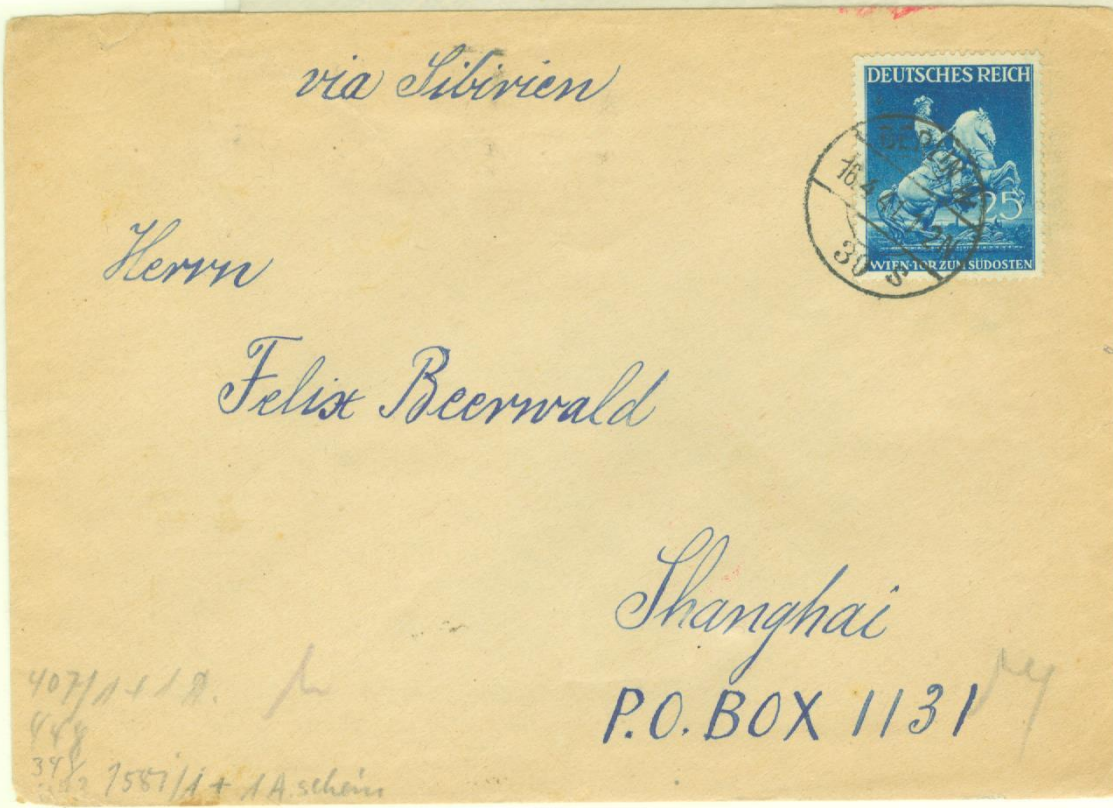 via Sibirien
DEUTSCHES REICH
25
WIEN-TOR ZUM SÜDOSTEN
BERLIN W
16.4.41.-2N
30 S
Herrn
Felix Beerwald
Shanghai
P.O. BOX 1131
407/1 + 1 A.
448